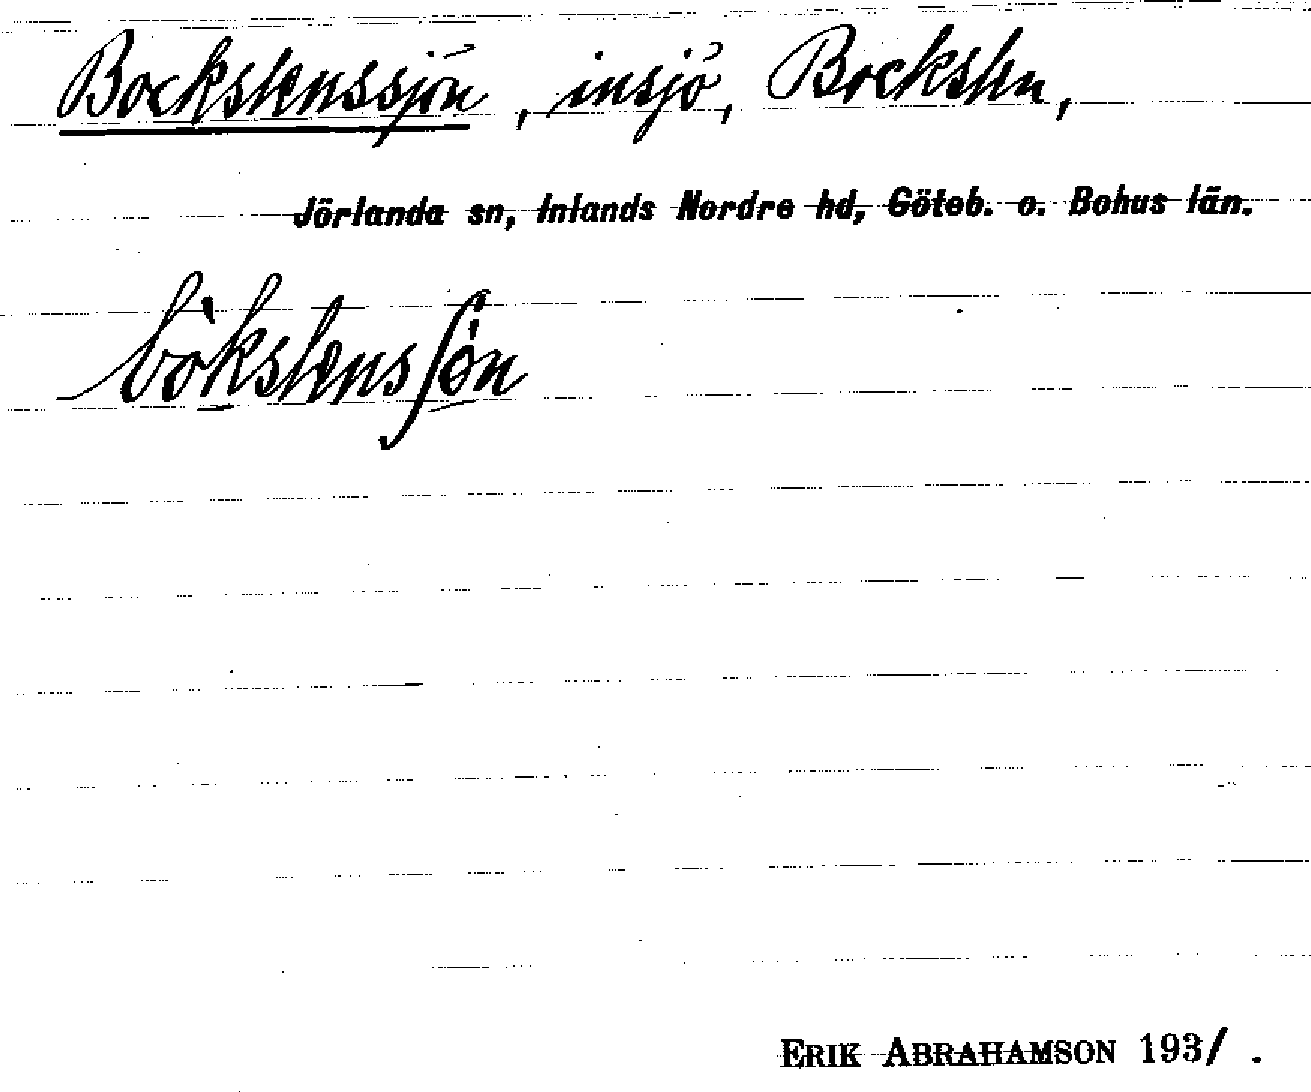 Bockstenssjön, insjö, Bocksten,
Jörlanda sn, Inlands Nordre hd, Göteb. o. Bohus län.
bòkstensʃøn
ERIK ABRAHAMSON 1931.